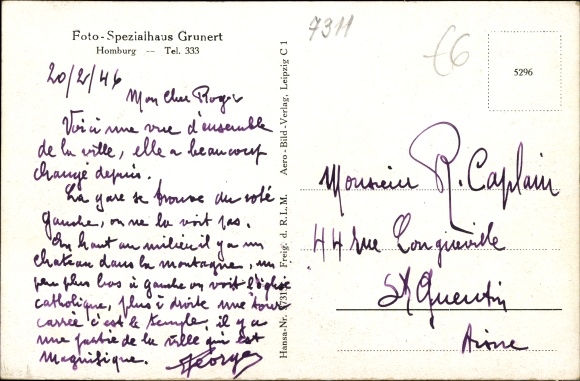 Foto-Spezialhaus Grunert
Homburg — Tel. 333
20/2/46
Mon cher Roger
Voici une vue d'ensemble
de la ville, elle a beaucoup
changé depuis.
La gare se trouve du coté
gauche, on ne la voit pas.
En haut au milieu il y a un
chateau dans la montagne, un
peu plus bas à gauche on voit l'église
catholique, plus à droite une tour
carrée c'est le temple, il y a
une partie de la ville qui est
magnifique. Georges
Hansa-Nr. Freig. d. R.L.M. Aero-Bild-Verlag, Leipzig C 1
7311
£6
5296
Monsieur R. Caplain
44 rue Longueville
St Quentin
Aisne